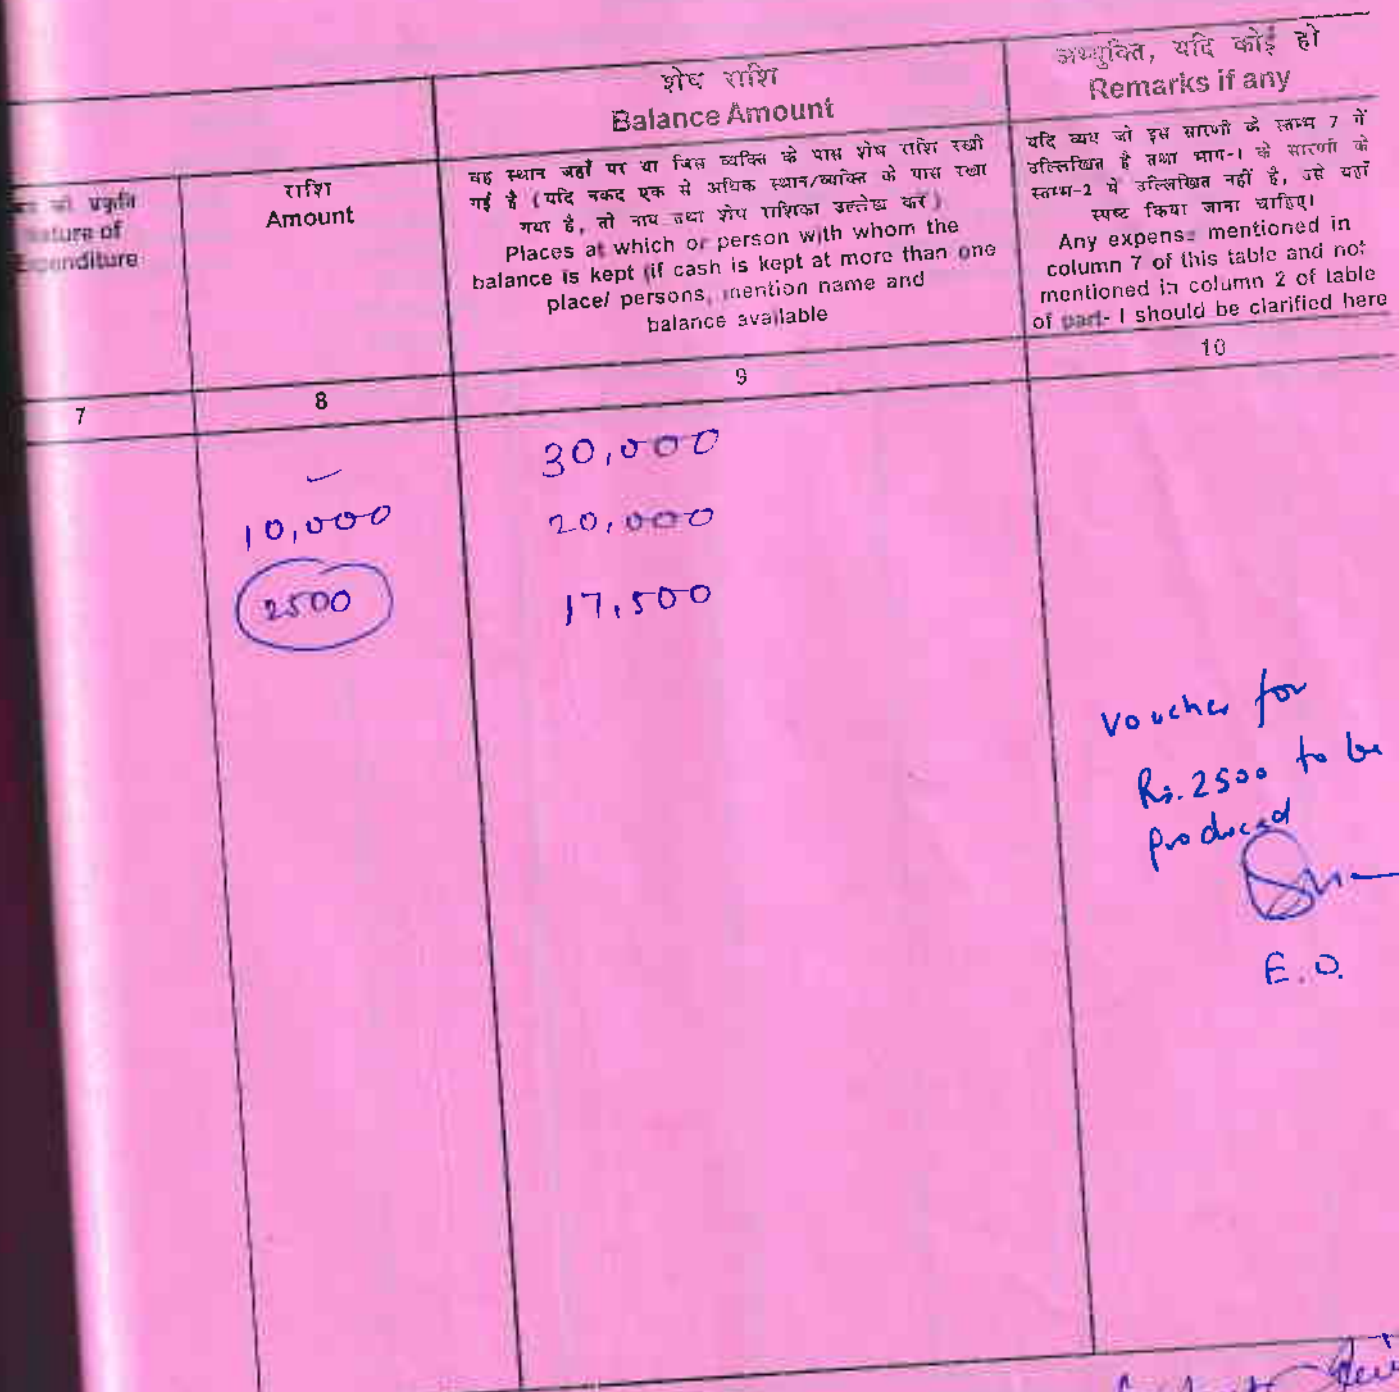 शेष राशि
Balance Amount
अभ्युक्ति, यदि कोई हो
Remarks if any
की प्रकृति
Nature of
Expenditure
राशि
Amount
वह स्थान जहाँ पर या जिस व्यक्ति के पास शेष राशि रखी
गई है (यदि नकद एक से अधिक स्थान/व्यक्ति के पास रखा
गया है, तो नाम तथा शेष राशिका उल्लेख करें)
Places at which or person with whom the
balance is kept (if cash is kept at more than one
place/ persons, mention name and
balance available
यदि व्यय जो इस सारणी के स्तम्भ 7 में
उल्लिखित है तथा भाग-I के सारणी के
स्तम्भ-2 में उल्लिखित नहीं है, उसे यहाँ
स्पष्ट किया जाना चाहिए।
Any expense mentioned in
column 7 of this table and not
mentioned in column 2 of table
of part- I should be clarified here
7
8
9
10
–
30,000
10,000
20,000
2500
17,500
Voucher for
Rs.2500 to be
produced
E.O.